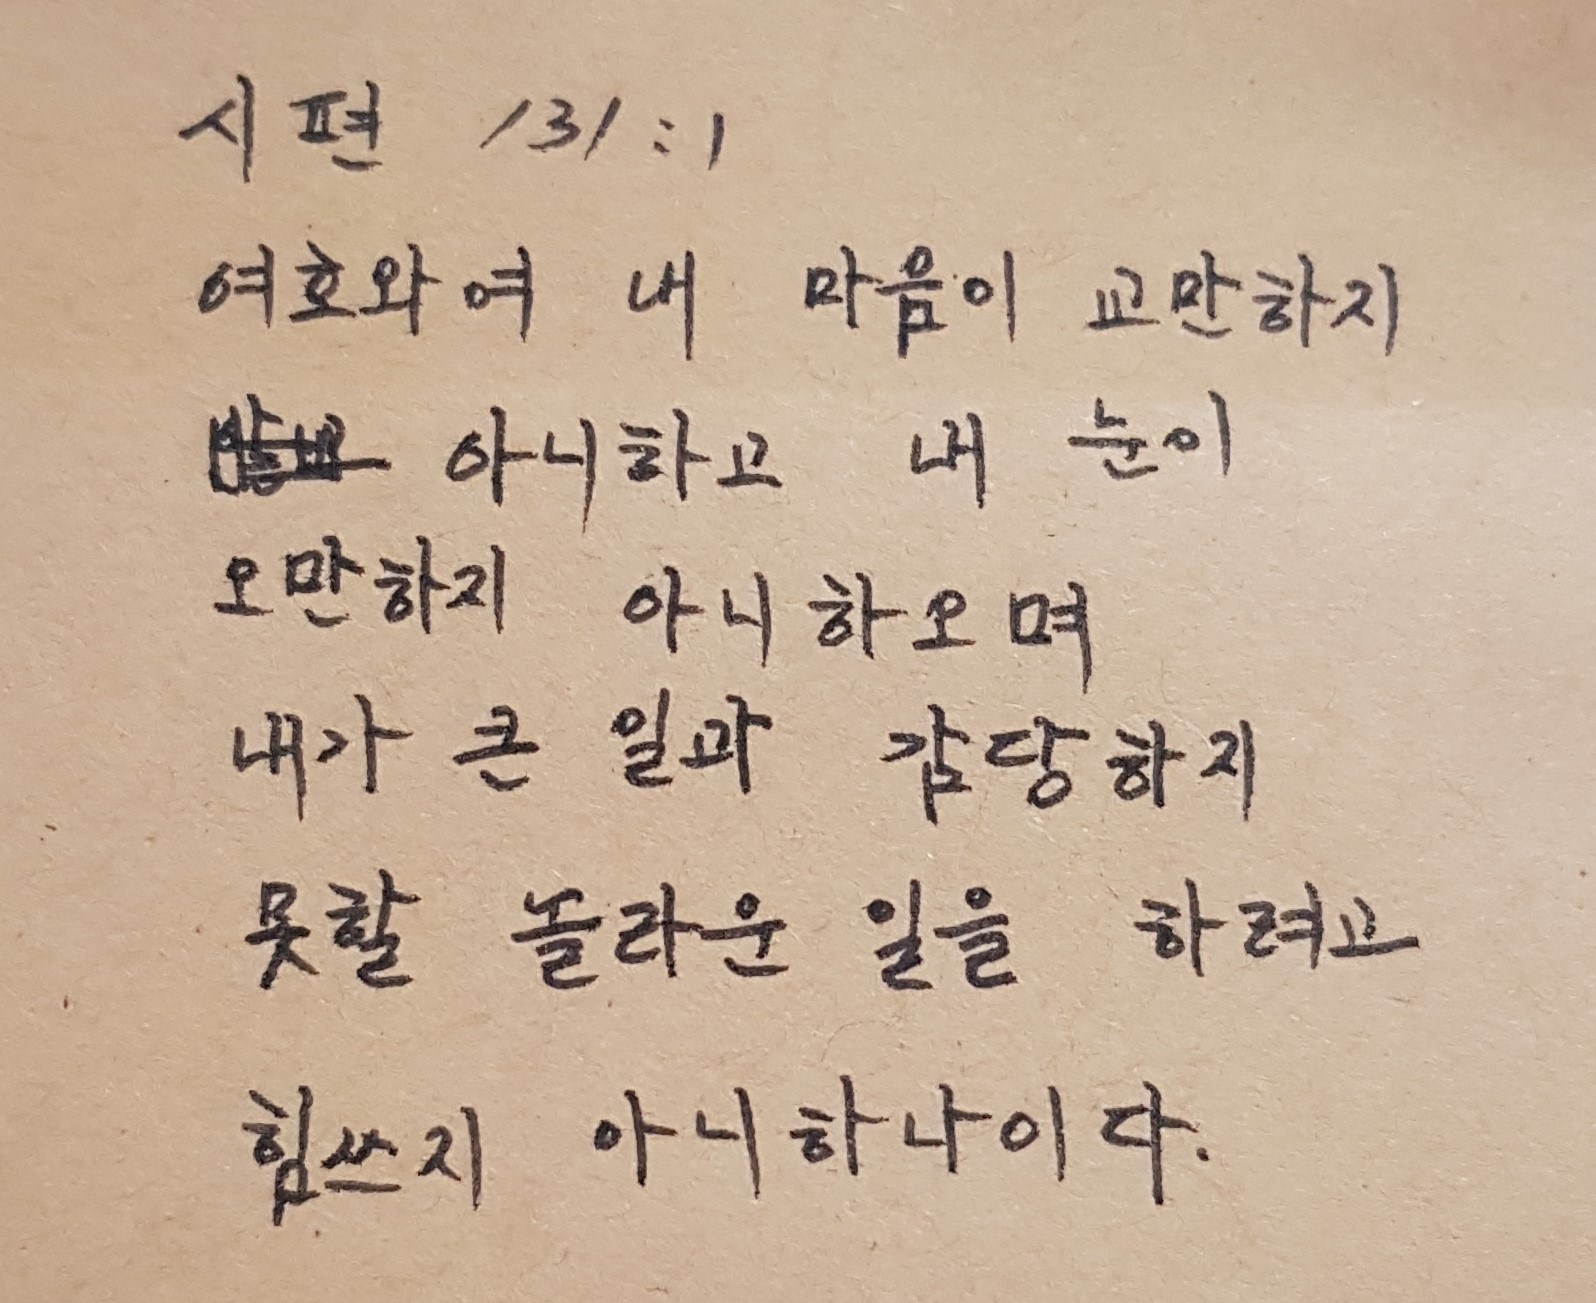 시편 131:1
여호와여 내 마음이 교만하지
아니하고 내 눈이
오만하지 아니하오며
내가 큰 일과 감당하지
못할 놀라운 일을 하려고
힘쓰지 아니하나이다.